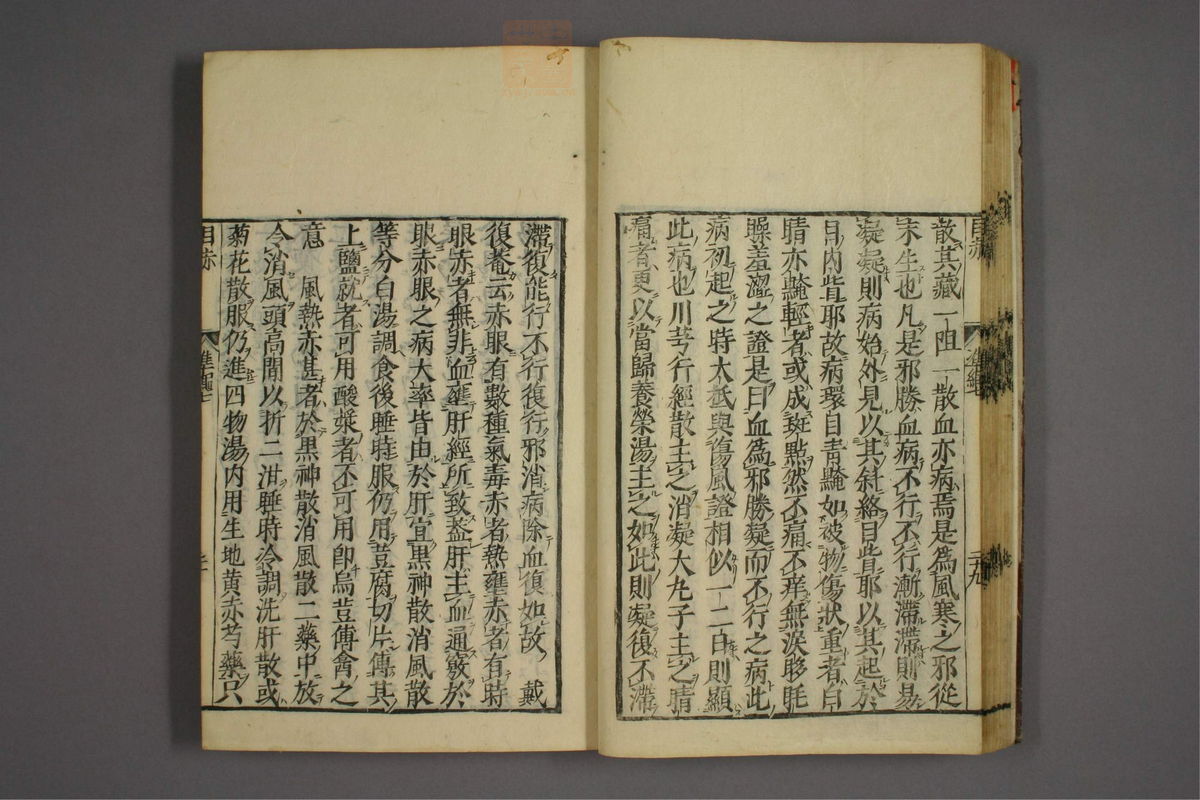 散其藏一阻一散血亦病焉是爲風寒之邪從
末生也凡是邪勝血病不行不行漸滯滯則易
凝凝則病始外見以其斜絡目眥耶以其起於
目内眥耶故病環目青䵟如被物傷狀重者白
睛亦䵟輕者或成斑點然不痛不痒無淚眵眊
矂羞澀之證是曰血爲邪勝凝而不行之病此
病初起之時大抵與傷風證相似一二日則顯
此病也川芎行經散主之消凝大丸子主之睛
痛者更以當歸養榮湯主之如此則凝復不滯
滯復能行不行復行邪消病除血復如故 戴
復菴云赤眼有數種氣毒赤者熱壅赤者有時
眼赤者無非血壅肝經所致蓋肝主血通竅於
眼赤眼之病大率皆由於肝宜黑神散消風散
等分白湯調食後睡時服仍用荳腐切片傅其
上鹽就者可用酸漿者不可用卽烏荳傅
意 風熱亦甚者於黑神散消風散二藥中放
令消風頭高間以折二泔睡時冷調洗肝散或
菊花散服仍進四物湯内用生地黄赤芍藥只
目赤
準繩七